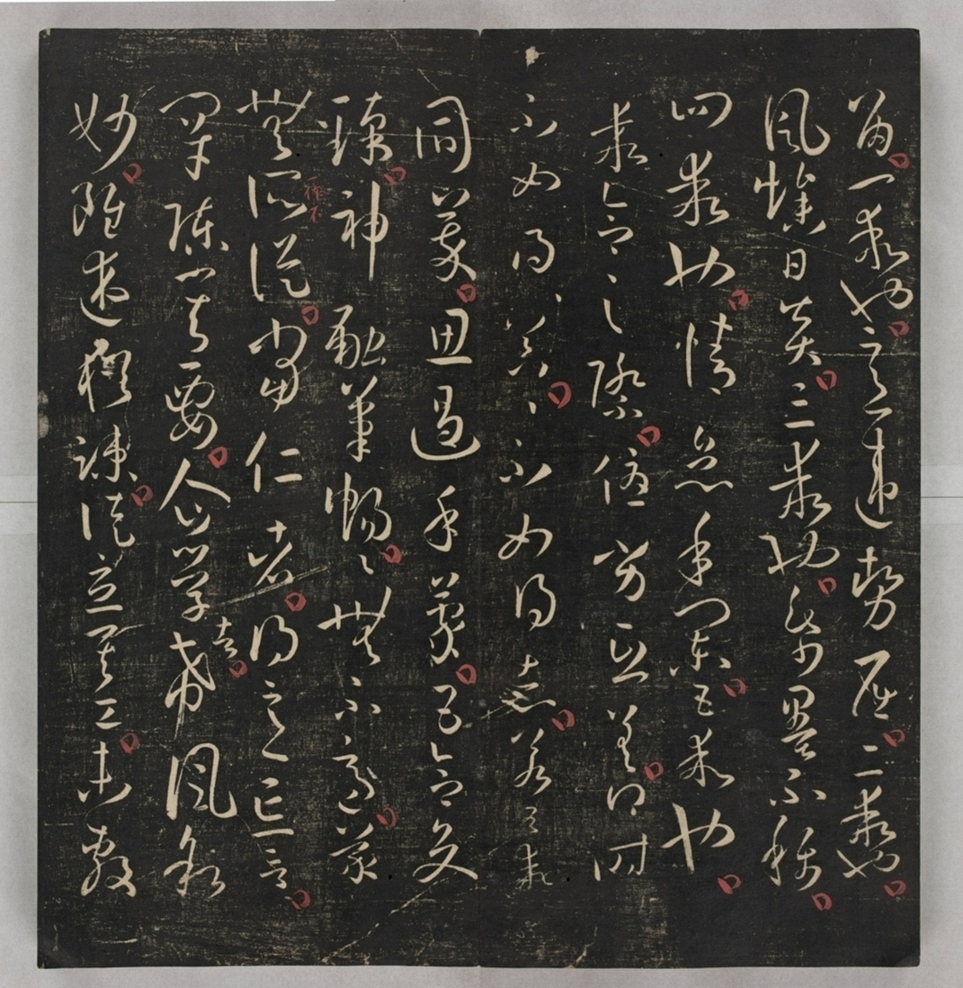 留一乖也意違勢屈二乖也
風燥日炎三乖也紙墨不稱
四乖也情怠手闌五乖也
乖合之際優劣互差得時
不如得〻器〻不如得志若五乖
同萃思遏手蒙五合交
臻神融筆暢〻無不適蒙
無所從當仁者得意忘言
罕陳其要企學者希風敘
妙雖述猶疎徒立其工未敷